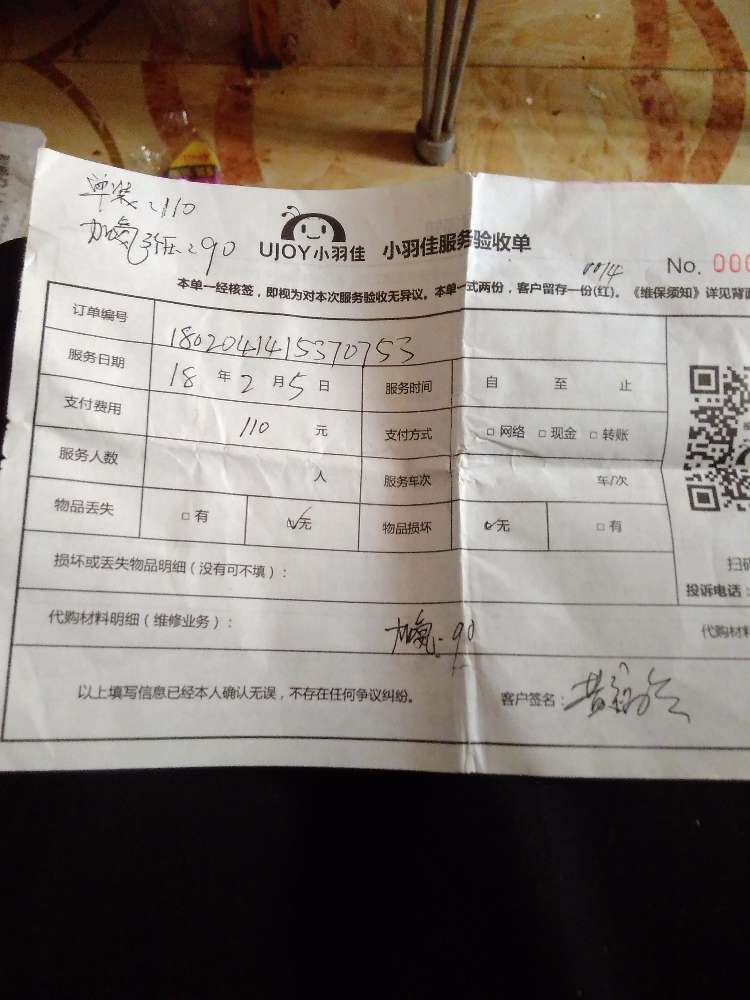 单装:110
加氟 :90
UJOY小羽佳 小羽佳服务验收单
0014 No. 000
本单一经核签，即视为对本次服务验收无异议。本单一式两份，客户留存一份(红)。《维保须知》详见背面
订单编号 1802041415370753
服务日期 18 年 2 月 5 日 服务时间 自 至 止
支付费用 110 元 支付方式 □ 网络 □ 现金 □ 转账
服务人数 人 服务车次 车/次
物品丢失 □ 有 ☑无 物品损坏 ☑无 □ 有
损坏或丢失物品明细（没有可不填）： 扫码
投诉电话：
代购材料明细（维修业务）： 加氟:90 代购材料
以上填写信息已经本人确认无误，不存在任何争议纠纷。 客户签名：